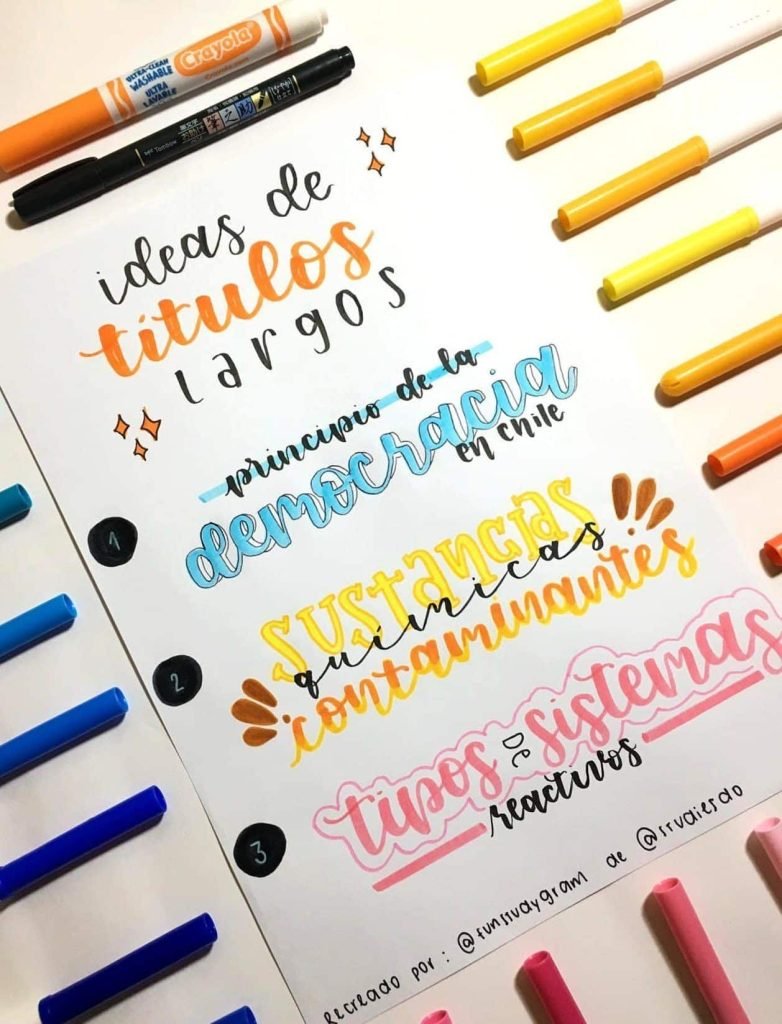 ULTRA-CLEAN
WASHABLE
ULTRA
LAVABLE
Crayola
Tombow
筆之助
ideas de
títulos
largos
1
principio de la
democracia
en chile
2
sustancias
químicas
contaminantes
3
tipos de sistemas
reactivos
recreado por: @funstudygram de @srvdiesdo